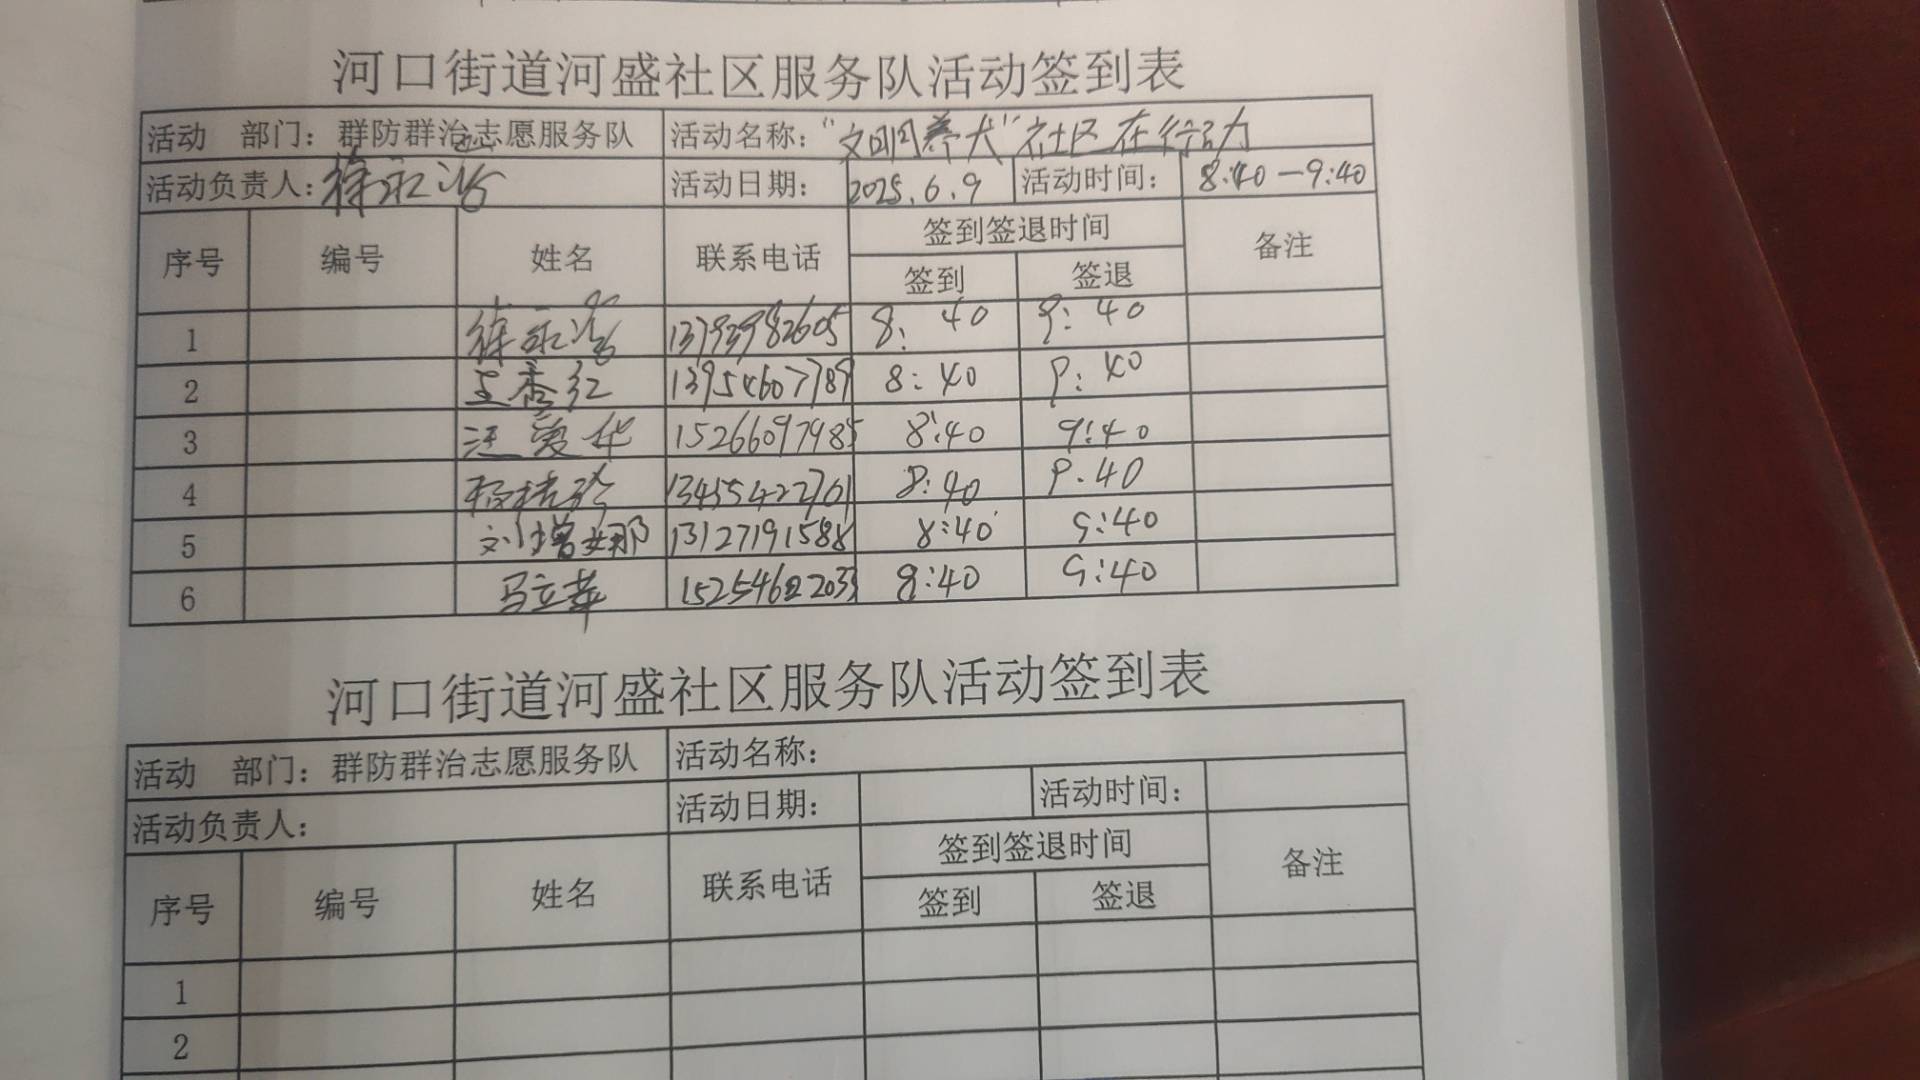 河口街道河盛社区服务队活动签到表
活动 部门：群防群治志愿服务队 活动名称："文明养犬"社区在行动
活动负责人： 活动日期：2025.6.9 活动时间：8:40—9:40
序号 编号 姓名 联系电话 签到签退时间 备注
签到 签退
1 13793982605 8:40 9:40
2 王秀红 13954607789 8:40 9:40
3 汪爱华 15266097985 8:40 9:40
4 杨桂珍 8:40 9.40
5 刘增娜 13127191588 8:40 9:40
6 马立苹 8:40 9:40
河口街道河盛社区服务队活动签到表
活动 部门：群防群治志愿服务队 活动名称：
活动负责人： 活动日期： 活动时间：
序号 编号 姓名 联系电话 签到签退时间 备注
签到 签退
1
2